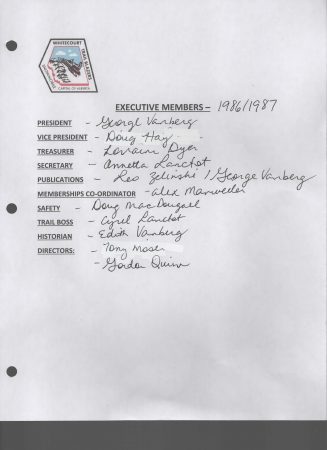 WHITECOURT
TRAIL BLAZERS
SNOWMOBILE
CAPITAL OF ALBERTA
EXECUTIVE MEMBERS – 1986/1987
PRESIDENT - George Vanberg
VICE PRESIDENT - Doug Hay
TREASURER - Lorraine Dyer
SECRETARY - Annetta Lanctot
PUBLICATIONS - Leo Zelinski / George Vanberg
MEMBERSHIPS CO-ORDINATOR - Alex Marweder
SAFETY - Doug MacDougall
TRAIL BOSS - Cyril Lanctot
HISTORIAN - Edith Vanberg
DIRECTORS: - Tony Moser
- Gordon Quinn